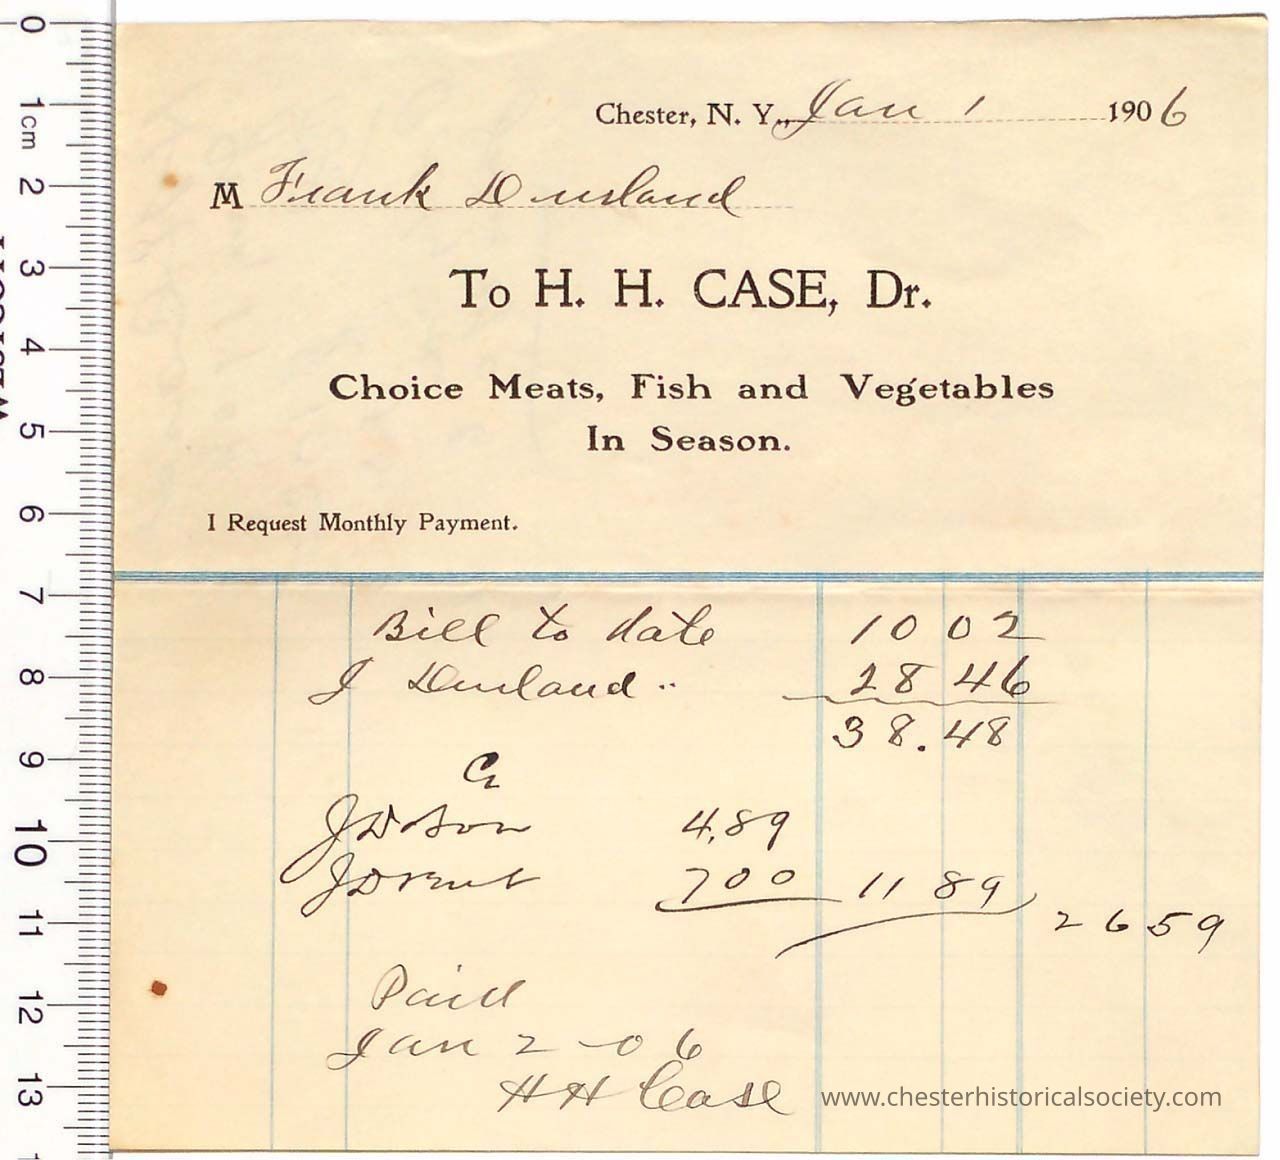 Chester, N. Y., Jan 1 1906
M Frank Durland
To H. H. CASE, Dr.
Choice Meats, Fish and Vegetables
In Season.
I Request Monthly Payment.
Bill to date 10 02
J Durland " 28 46
38.48
Cr
J D 4.89
J D 700 11 89
26 59
Paid
Jan 2 - 06
H H Case
www.chesterhistoricalsociety.com
0
1cm
2
3
4
5
6
7
8
9
10
11
12
13